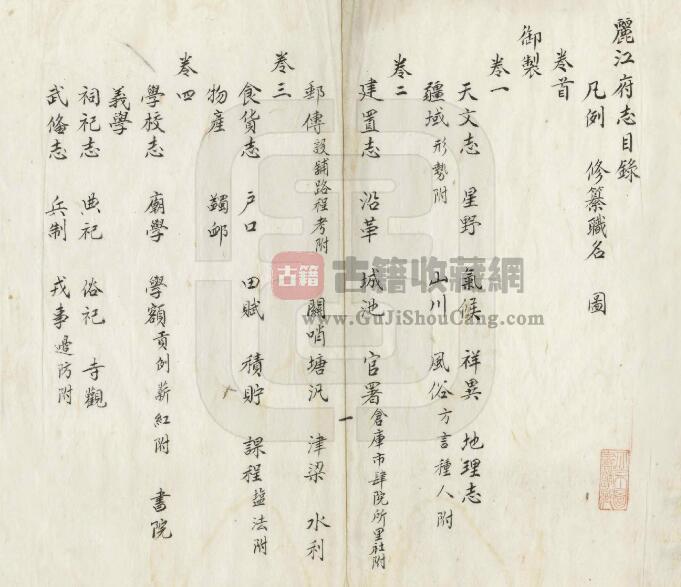 麗江府志目錄
卷首
凡例 修纂職名 圖
御製
卷一
天文志 星野 氣候 祥異 地理志
疆域形勢附 山川 風俗方言種人附
卷二
建置志 沿革 城池 官署倉庫市肆院所里社附
郵傳設鋪路程考附 關哨塘汛 津梁 水利
卷三
食貨志 戶口 田賦 積貯 課程鹽法附
物產 蠲卹
卷四
學校志 廟學 學額貢例薪紅附 書院
義學
祠祀志 典祀 俗祀 寺觀
武俻志 兵制 戎事邊防附
一
古籍 古籍收藏網
www.GuJiShouCang.com